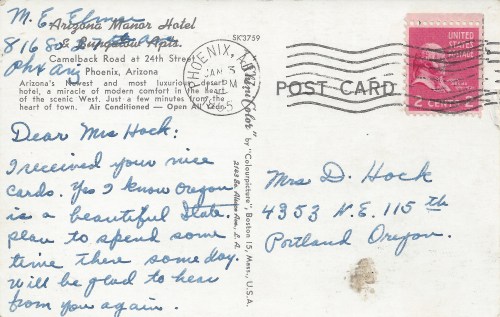 M. E.
816 So.
Phx Ariz
Arizona Manor Hotel
& Bungalow Apts.
Camelback Road at 24th Street
Phoenix, Arizona
Arizona's newest and most luxurious desert
hotel, a miracle of modern comfort in the heart
of the scenic West. Just a few minutes from the
heart of town. Air Conditioned — Open All Year.
SK3759
Dear Mrs Hock:
I received your nice
cards. Yes I know Oregon
is a beautiful State.
plan to spend some
time there some day.
will be glad to hear
from you again.
by "Colourpicture", Boston 15, Mass., U.S.A.
PHOENIX,
PM
POST CARD
UNITED
STATES
POSTAGE
2 CENTS 2
Mrs D. Hock
4353 N.E. 115 th
Portland Oregon.